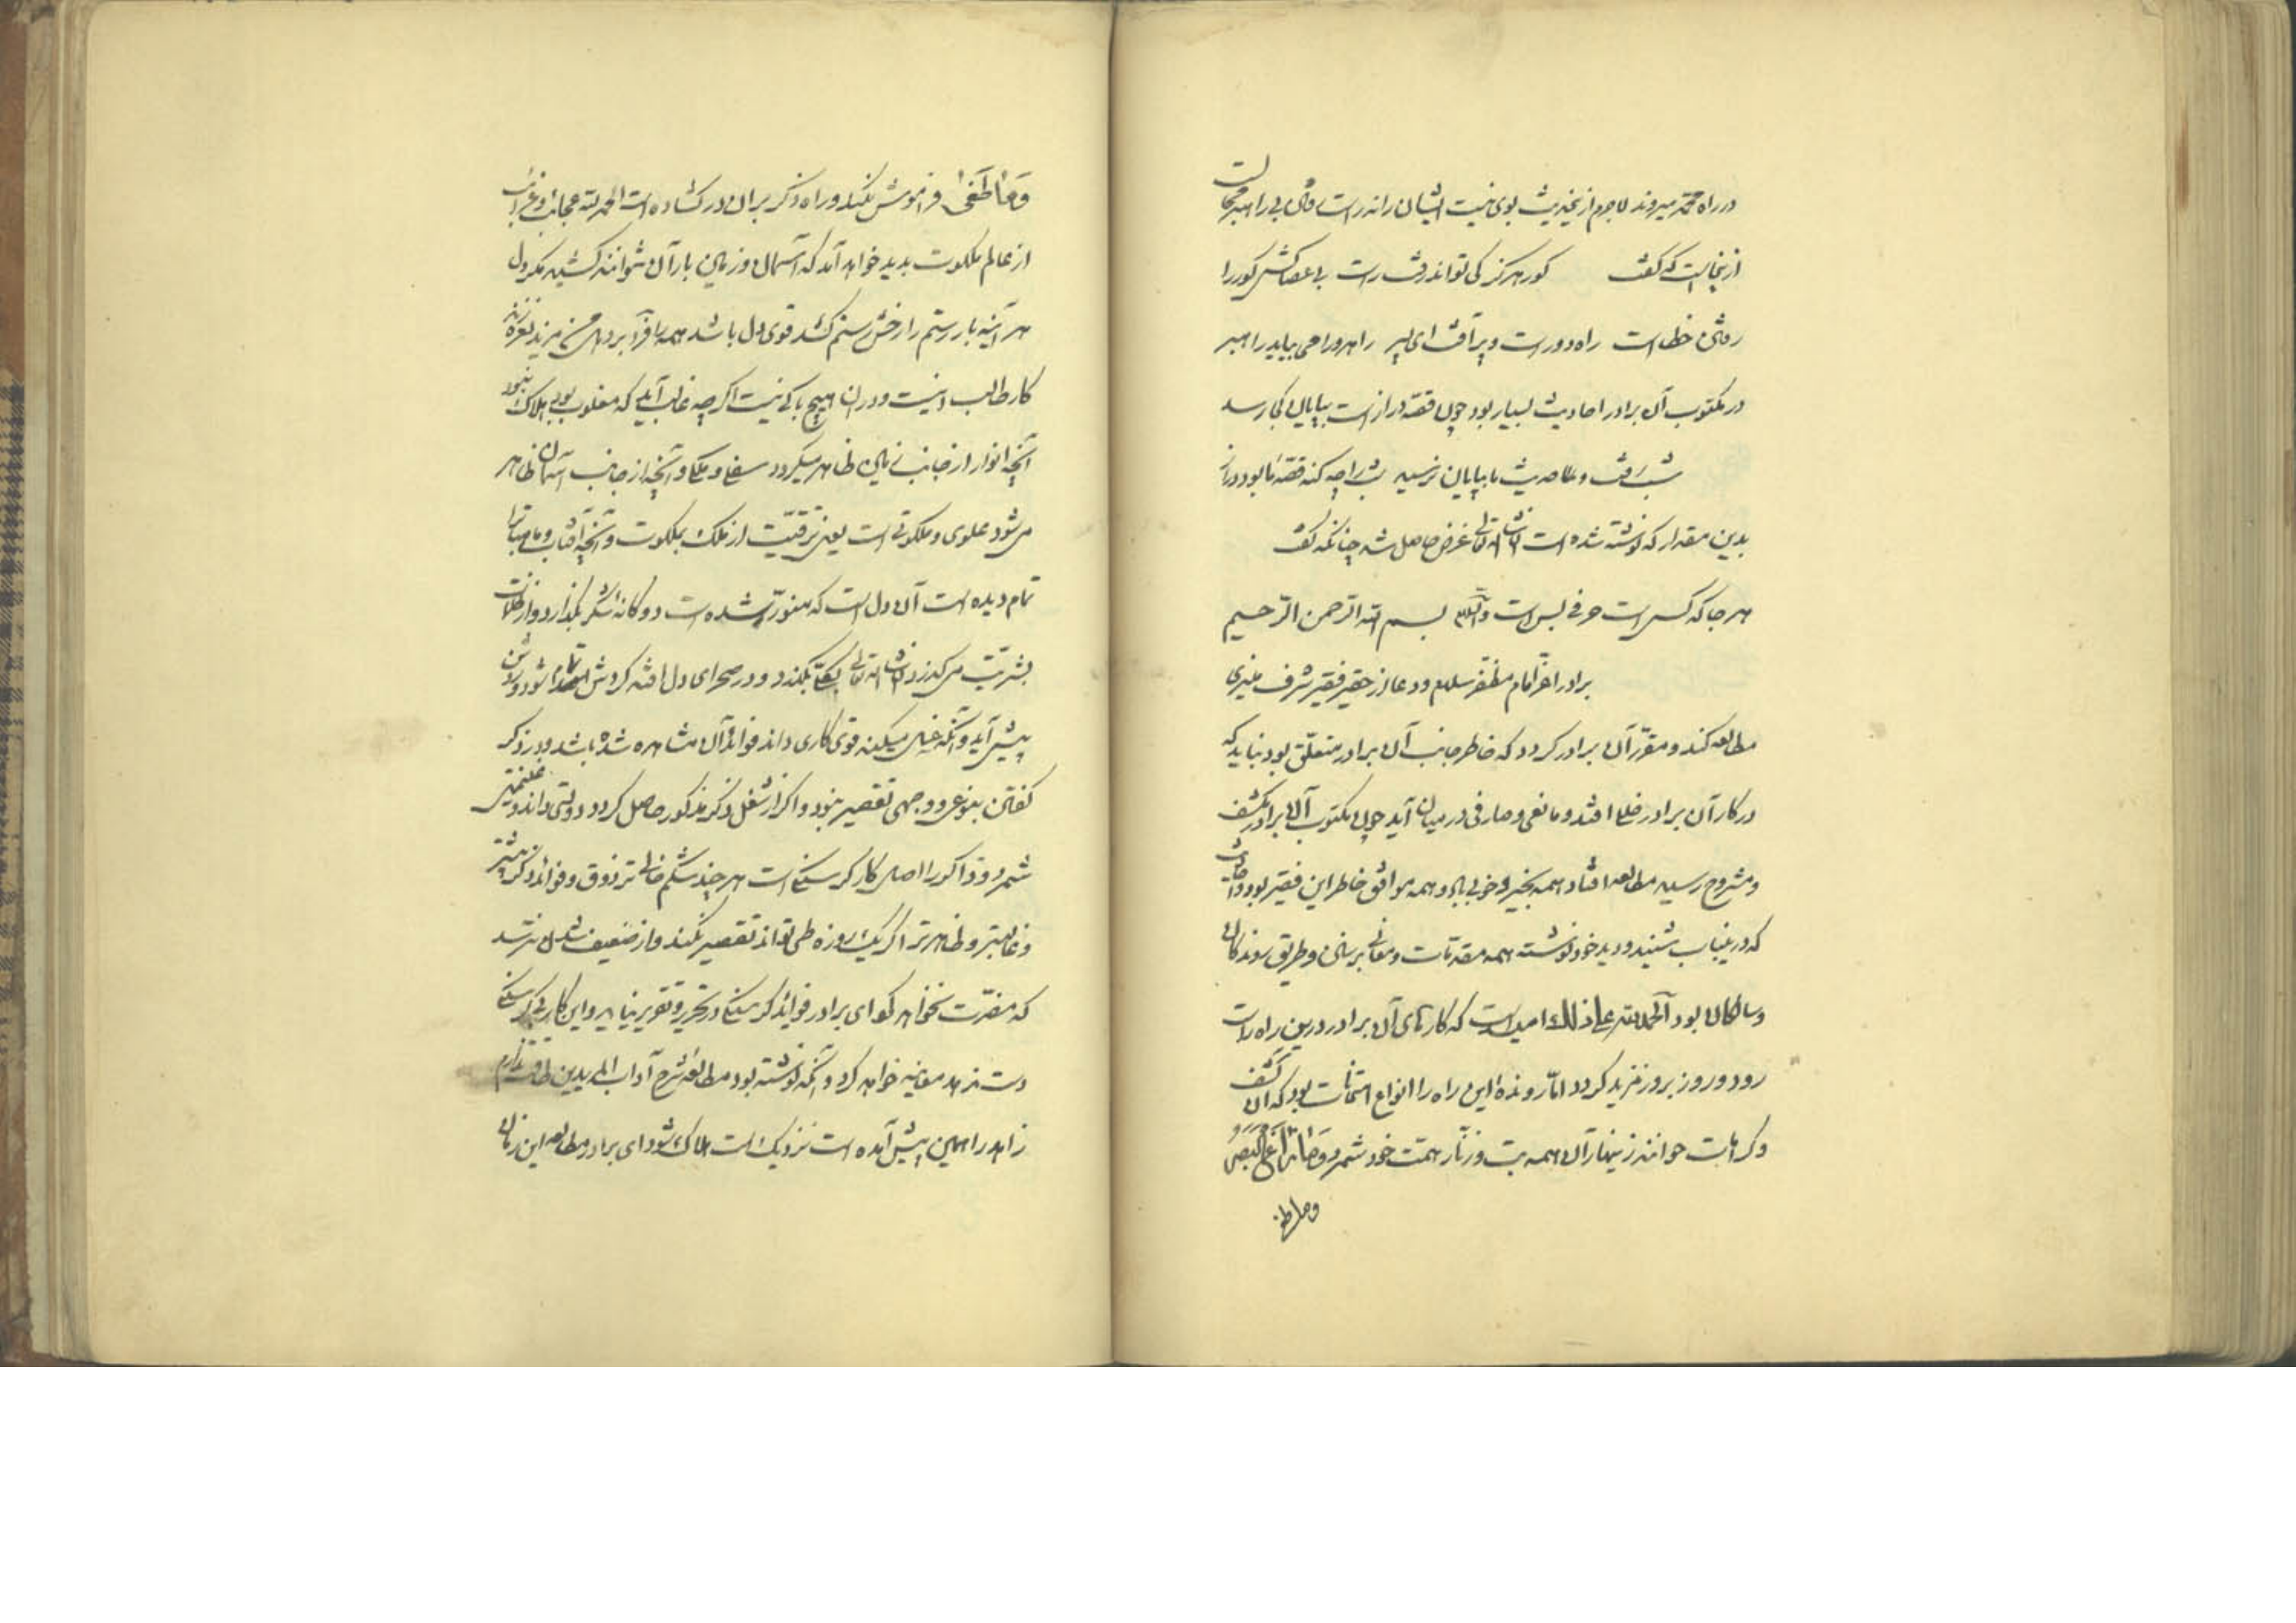 در راه محمد میروند لاجرم ازینحدیث بوی نیست ایشان را نه راست بی راهبر محالست
ازینجاست که گفت کور هرگز کی تواند رفت راست بی عصاکش کور را
رفتن خطاست راه دورست و پرآفت ای پسر راهرو را می بباید راهبر
در مکتوب آن برادر احادیث بسیار بود چون قصه درازست بپایان کی رسد
شب رفت و حدیث ما بپایان نرسید شب را چه کنه قصهٔ ما بود دراز
بدین مقدار که نوشته شده است ان شاء الله تعالی غرض حاصل شد چنانکه گفت
هر جا که کس است حرفی بس است والسلام بسم الله الرحمن الرحیم
برادر اعز امام مظفر سلام و دعا از حقیر فقیر شرف منیری
مطالعه کند و مقرر آن برادر گردد که خاطر جانب آن برادر متعلق بود نباید که
در کار آن برادر خللی افتد و مانعی و صارفی در میان آید چون مکتوب آن برادر مکشف
و مشروح رسید مطالعه افتاد همه بخیر و خوبی بود و همه موافق خاطر این فقیر بود
که در ینباب شنید و دید خود نوشته همه مقدمات و معانی و طریق روندگان
و سالکان بود الحمد لله علی ذلک امید است که کارهای آن برادر درین راه راست
رود و روز بروز مزید گردد اما رونده این راه را انواع امتحانات بود که آن کشف
و کرامات خوانند زینهار آن همه بت و زنار همت خود شمرد و ما زاغ البصر
و ما طغی
وما طغی فراموش نکند و راه ذکر بر آن در گشاده است الحمد لله عجائب و غرائب
از عالم ملکوت پدید خواهد آمد که آسمان و زمین بار آن نتوانند کشید مگر دل
هر آینه بار رستم را رخش رستم کشد قوی دل باشد همه را فرو برد هل من مزید نعره زند
کار طالب اینست و در آن هیچ باکی نیست اگرچه غالب آید که مغلوب بود هلاک نبود
آنچه انوار از جانب زمین ظاهر میگردد سفلی و ملکی و آنچه از جانب آسمان ظاهر
می شود علوی و ملکوتی است یعنی ترقیست از ملک بملکوت و آنچه آفتاب و ماهتاب
تمام دیده است آن دل است که منور شده است دوگانهٔ شکر بگذارد و از ظلمات
بشریت می گذرد ان شاء الله تعالی بکلی بگذرد و در صحرای دل افتد گردش تمام شود و روش
پیش آید و آنکه غسل میکند قوی کاری داند فوائد آن مشاهده شده باشد و در ذکر
گفتن بنوعی و وجهی تقصیر نبود و اگر از شغل ذکر مذکور حاصل گردد دولتی داند و غنیمتی
شمرد و ذاکر را اصل کار گرسنگی است هر چند شکم خالی تر ذوق و فوائد ذکر بیشتر
و غالبتر و ظاهرتر اگر یک روزه طی تواند تقصیر نکند و از ضعیف شدن نترسد
که مضرت نخواهد کرد ای برادر فوائد گرسنگی در تحریر و تقریر نیاید و این کار بی گرسنگی
دست ندهد معاینه خواهد کرد و آنکه نوشته بود مطالعهٔ شرح آداب المریدین طاقت ندارم
زاهد را همین پیش آمده است نزدیک است هلاک شود ای برادر مطالعه این زمان